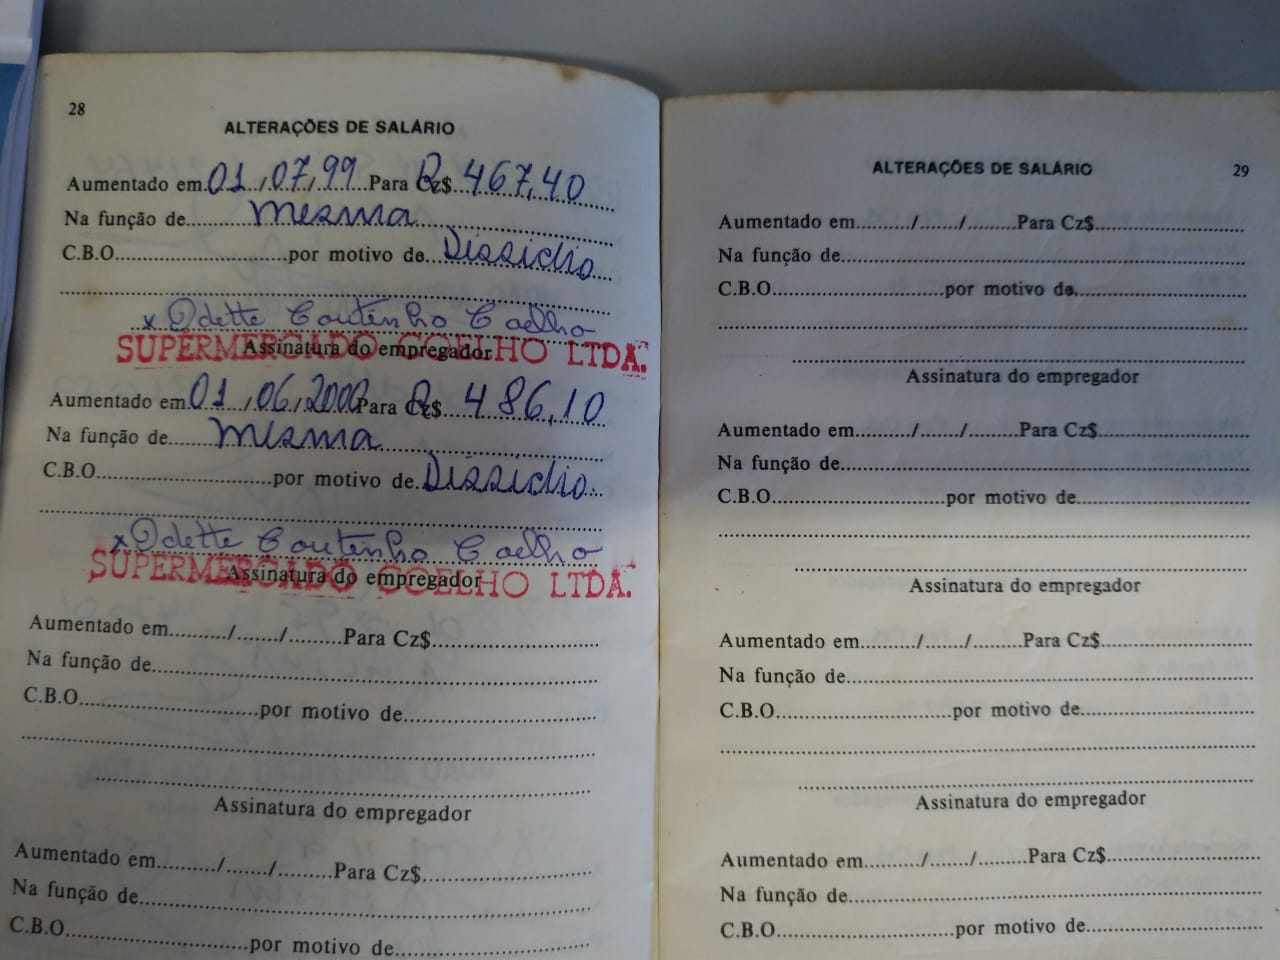 28
ALTERAÇÕES DE SALÁRIO
Aumentado em 01/07/99 Para Cz$ R$ 467,40
Na função de mesma
C.B.O. por motivo de Dissidio
x Odette Coutinho Coelho
Assinatura do empregador
SUPERMERCADO COELHO LTDA.
Aumentado em 01/06/2000 Para Cz$ R$ 486,10
Na função de mesma
C.B.O. por motivo de Dissidio
x Odette Coutinho Coelho
Assinatura do empregador
SUPERMERCADO COELHO LTDA.
Aumentado em ........../......./........Para Cz$
Na função de
C.B.O. por motivo de
Assinatura do empregador
Aumentado em ........../......./........Para Cz$
Na função de
C.B.O. por motivo de
ALTERAÇÕES DE SALÁRIO 29
Aumentado em ........../......./.........Para Cz$
Na função de
C.B.O. por motivo de
Assinatura do empregador
Aumentado em ........../......./.........Para Cz$
Na função de
C.B.O. por motivo de
Assinatura do empregador
Aumentado em ........../......./.........Para Cz$
Na função de
C.B.O. por motivo de
Assinatura do empregador
Aumentado em ........../......./.........Para Cz$
Na função de
C.B.O. por motivo de